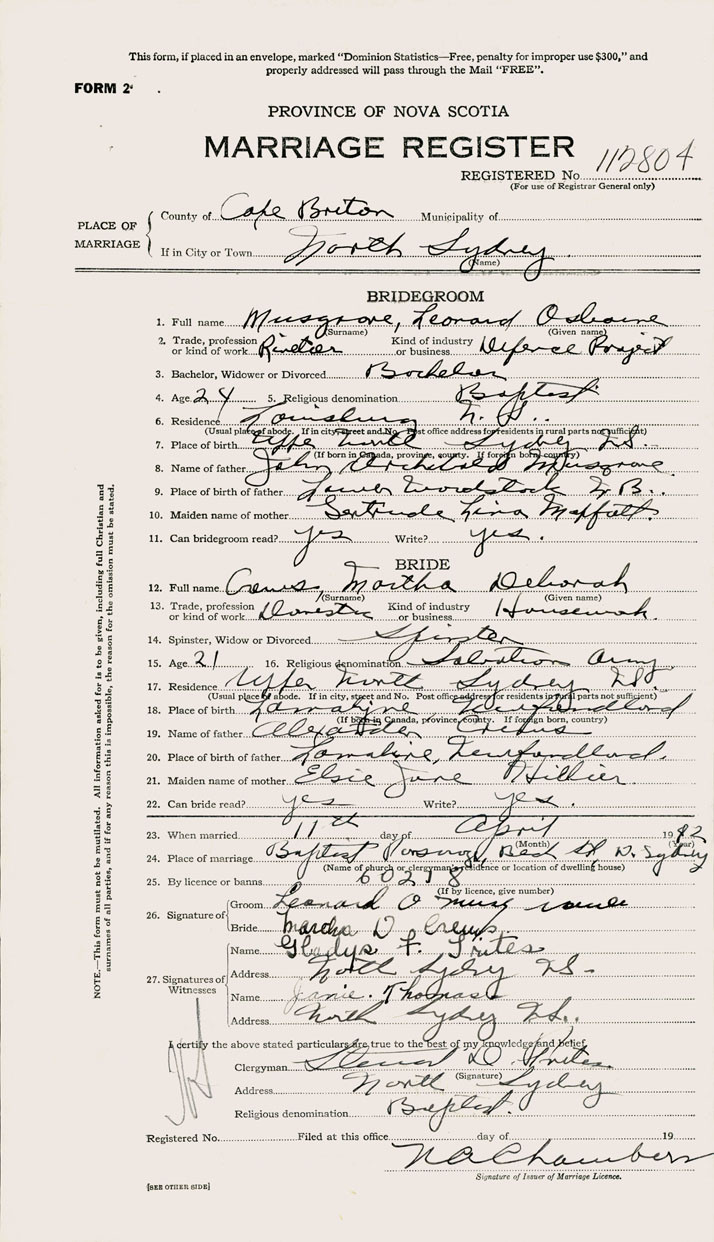 This form, if placed in an envelope, marked "Dominion Statistics—Free, penalty for improper use $300," and
properly addressed will pass through the Mail "FREE".
FORM 2
PROVINCE OF NOVA SCOTIA
MARRIAGE REGISTER
REGISTERED No. 112804
(For use of Registrar General only)
PLACE OF MARRIAGE
County of Cape Breton Municipality of
If in City or Town North Sydney
(Name)
BRIDEGROOM
1. Full name Musgrove, Leonard Osborne
(Surname) (Given name)
2. Trade, profession or kind of work Riveter Kind of industry or business Defence Project
3. Bachelor, Widower or Divorced Bachelor
4. Age 24 5. Religious denomination Baptist
6. Residence Louisburg N. S.
(Usual place of abode. If in city, street and No. Post office address for residents in rural parts not sufficient)
7. Place of birth Upper North Sydney N.S.
(If born in Canada, province, county. If foreign born, country)
8. Name of father John Archibald Musgrove
9. Place of birth of father Lower Woodstock N.B.
10. Maiden name of mother Gertrude Lina Moffatt
11. Can bridegroom read? yes Write? yes.
BRIDE
12. Full name Crews, Martha Deborah
(Surname) (Given name)
13. Trade, profession or kind of work Domestic Kind of industry or business Housework.
14. Spinster, Widow or Divorced Spinster
15. Age 21 16. Religious denomination Salvation Army
17. Residence Upper North Sydney N.S.
(Usual place of abode. If in city, street and No. Post office address for residents in rural parts not sufficient)
18. Place of birth Lamaline Newfoundland
(If born in Canada, province, county. If foreign born, country)
19. Name of father Alexander Crews
20. Place of birth of father Lamaline, Newfoundland.
21. Maiden name of mother Elsie Jane Hillier
22. Can bride read? yes Write? yes.
23. When married 11th day of April 1942
(Month) (Year)
24. Place of marriage Baptist Parsonage, Beck St. N. Sydney
(Name of church or clergyman's residence or location of dwelling house)
25. By licence or banns 60278
(If by licence, give number)
26. Signature of
Groom Leonard O Musgrove
Bride Martha D. Crews
27. Signatures of Witnesses
Name Gladys F. Frites
Address North Sydney N.S.
Name Janie Thomas
Address North Sydney N.S.
I certify the above stated particulars are true to the best of my knowledge and belief.
Clergyman D. Frites
(Signature)
Address North Sydney
Religious denomination Baptist.
Registered No. Filed at this office day of 19
N A Chambers
Signature of Issuer of Marriage Licence.
[SEE OTHER SIDE]
NOTE.—This form must not be mutilated. All information asked for is to be given, including full Christian and
surnames of all parties, and if for any reason this is impossible, the reason for the omission must be stated.